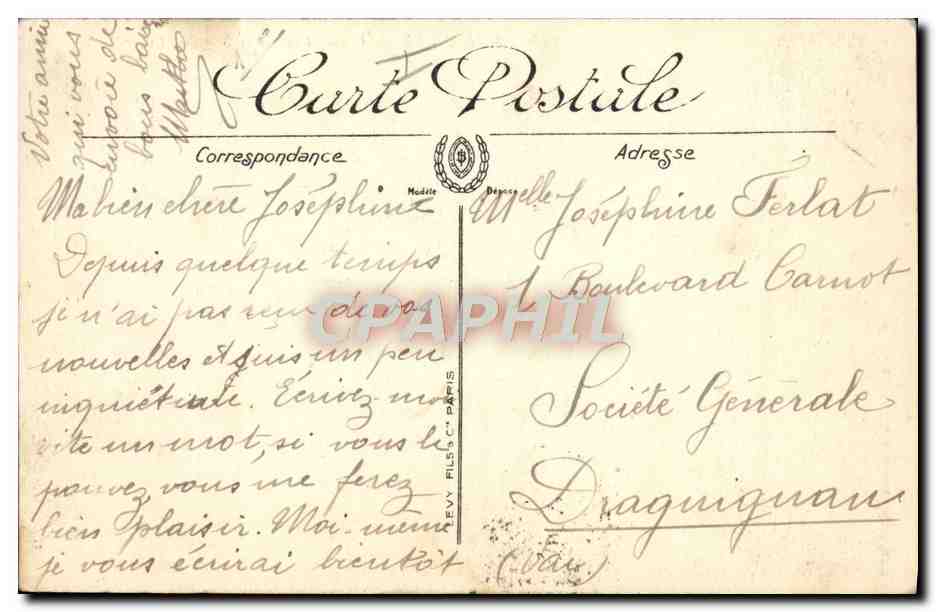 Carte Postale
Correspondance
Adresse
Modèle Déposé
Ma bien chère Joséphine
Depuis quelque temps
je n'ai pas reçu de vos
nouvelles et suis un peu
inquiète. Écrivez-moi
vite un mot, si vous le
pouvez, vous me ferez
bien plaisir. Moi-même
je vous écrirai bientôt
Votre amie
qui vous
envoie de
bons baisers
Melle Joséphine Ferlat
1 Boulevard Carnot
Société Générale
Draguignan
(Var.)
LEVY FILS & Cie PARIS
CPAPHIL